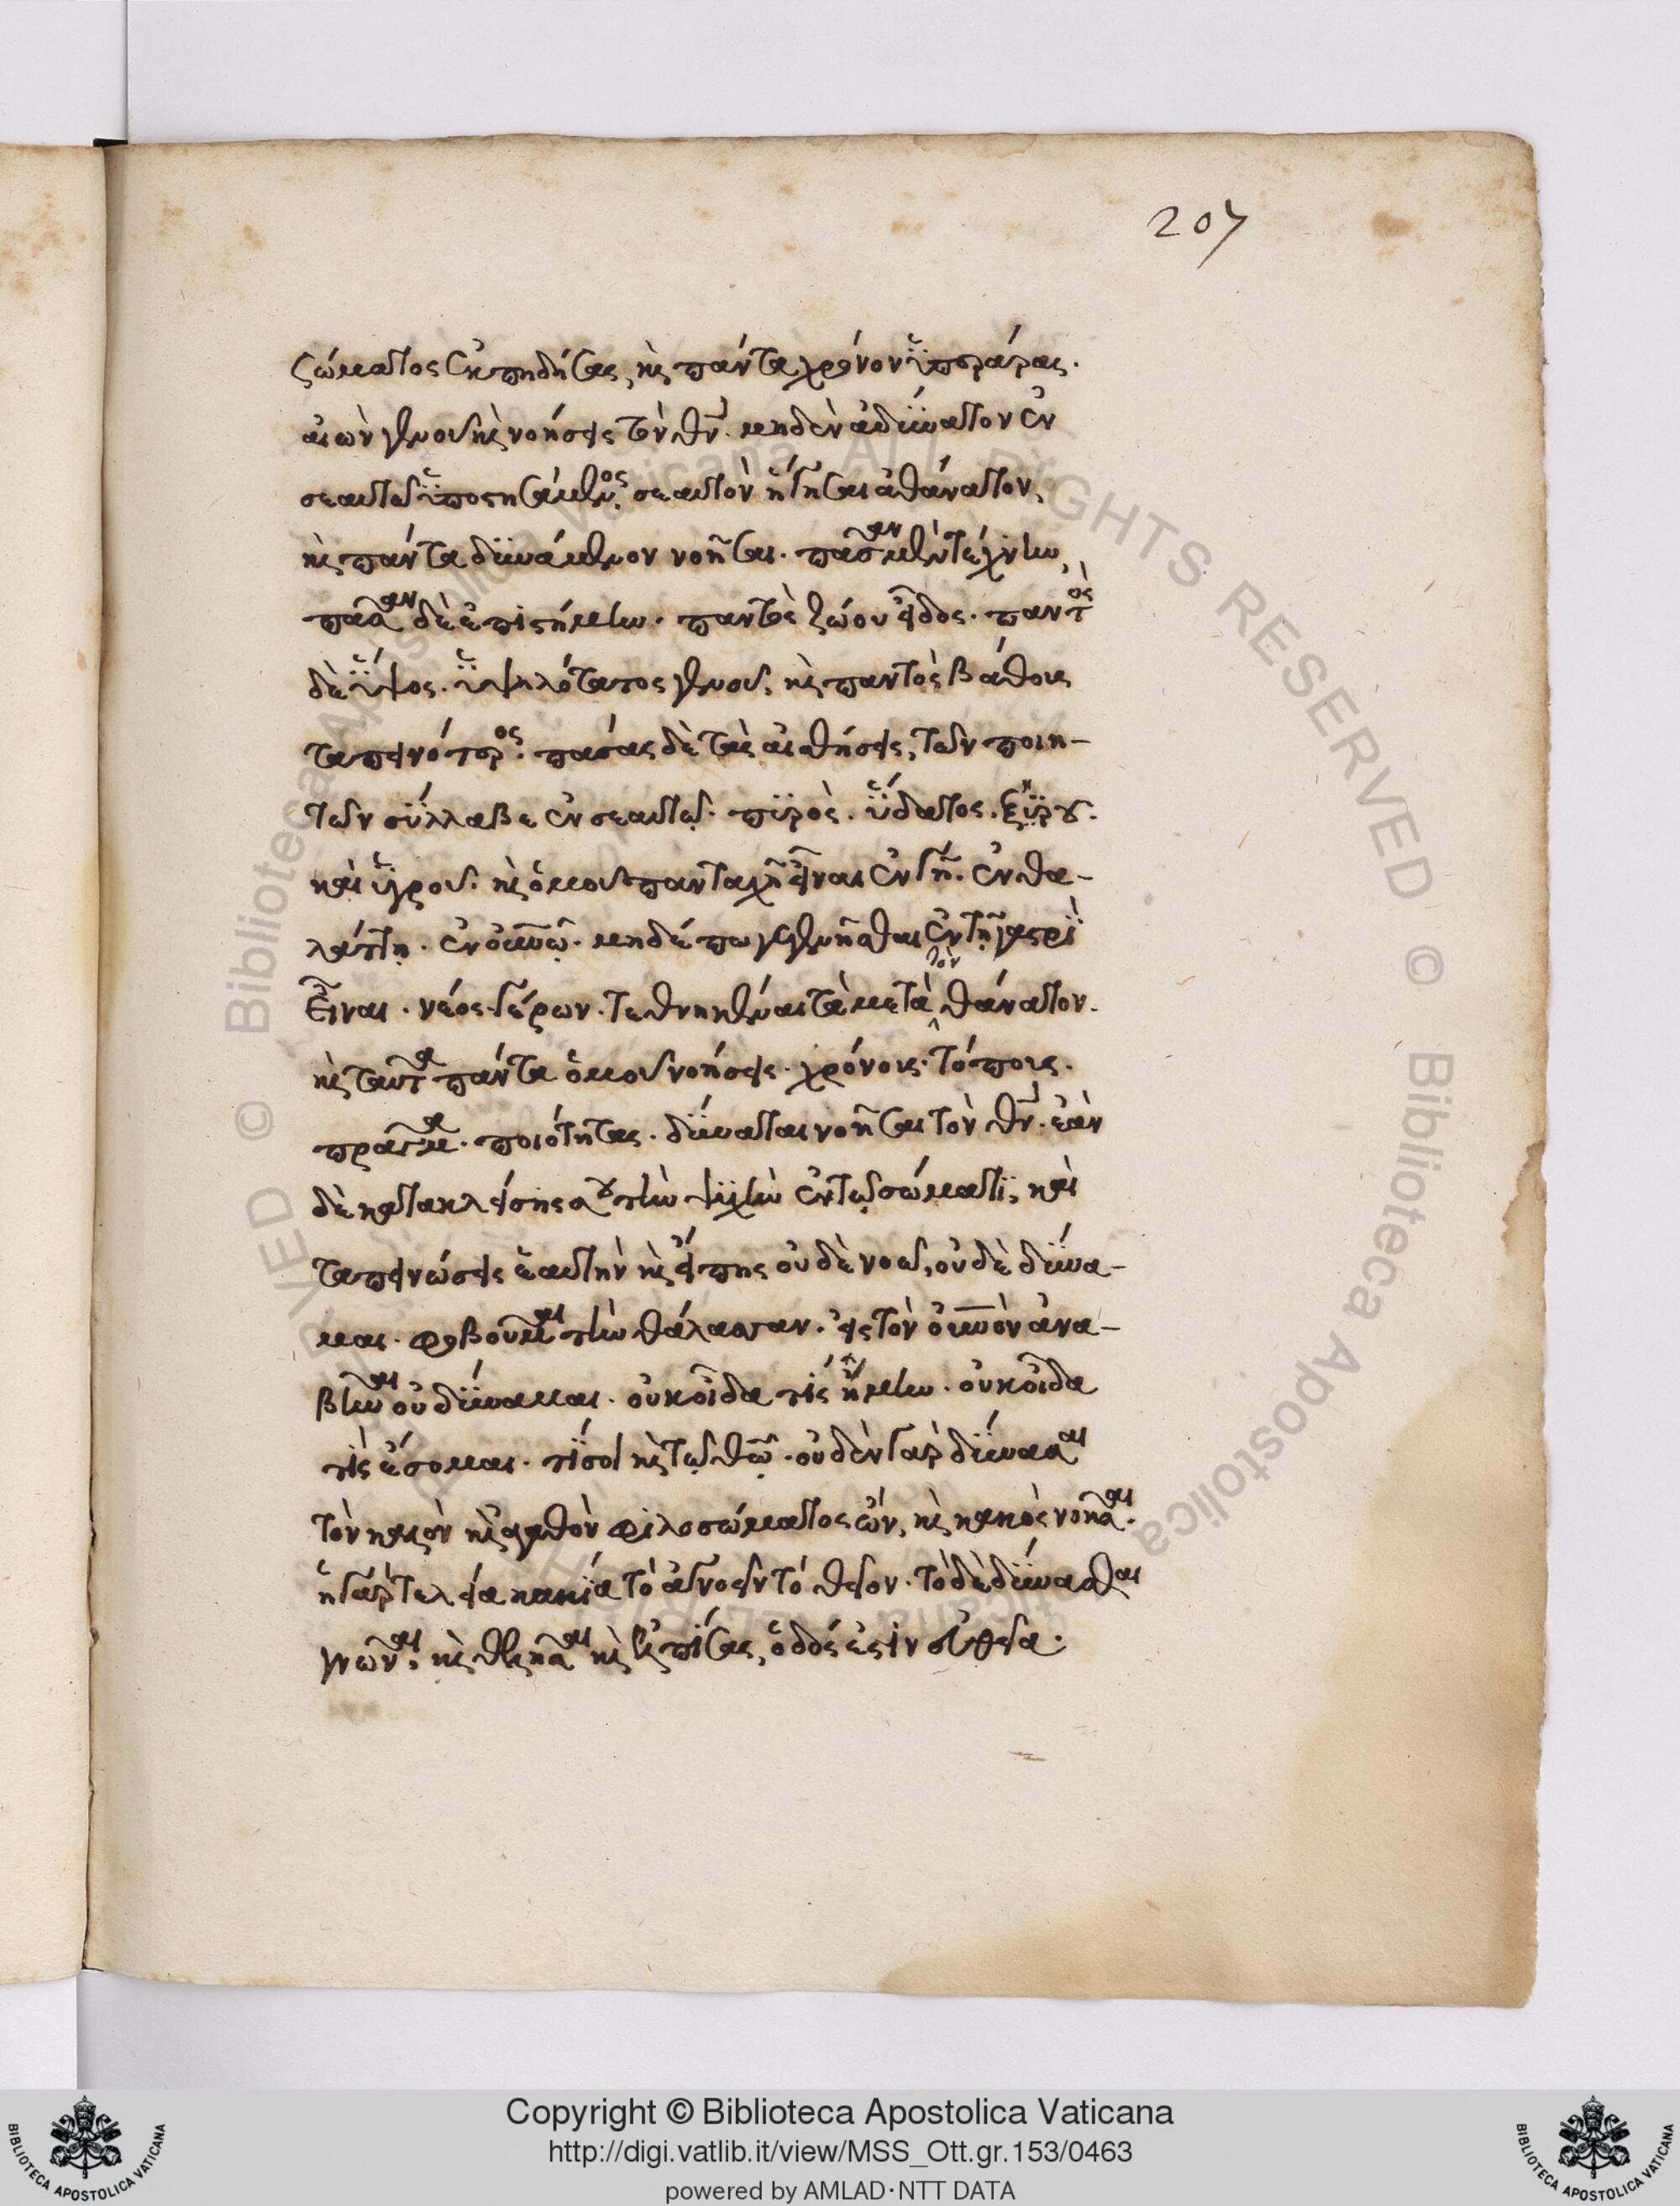 207
ζώματος ἐκπηδήσας, κὶ πάντα χρόνον ὑπεράρας.
αἰὼν γενοῦ κὶ νοήσεις τὸν θν. μηδὲν ἀδύνατον ἐν
σεαυτῷ ὑποστησάμενος. σεαυτὸν ἥγησαι ἀθάνατον,
κὶ πάντα δυνάμενον νοῆσαι. πᾶσαν μὲν τέχνην,
πᾶσαν δὲ ἐπιστήμην. παντὸς ζώου εἶδος. παντὸς
δὲ ὕψος. ὑψηλότατος γενοῦ, κὶ παντὸς βάθους
ταπεινότερος. πάσας δὲ τὰς αἰσθήσεις, τῶν ποιη-
τῶν σύλλαβε ἐν σεαυτῷ. πυρὸς. ὕδατος. ξηροῦ.
καὶ ὑγροῦ. κὶ ὁμοῦ πανταχῇ εἶναι ἐν γῇ. ἐν θα-
λάττῃ. ἐν οὐνῷ. μηδέπω γεγενῆσθαι ἐν τῇ γαστρὶ
εἶναι. νέος. γέρων. τεθνηκέναι τὰ μετὰ τὸν θάνατον.
κὶ ταῦτα πάντα ὁμοῦ νοήσεις. χρόνους. τόπους.
πράγματα. ποιότητας. δύναται νοῆσαι τὸν θν. ἐὰν
δὲ κατακλείσῃς σου τὴν ψυχὴν ἐν τῷ σώματι, καὶ
ταπεινώσεις ἑαυτὴν κὶ εἴπῃς οὐδὲ νοῶ, οὐδὲ δύνα-
μαι. φοβοῦμαι τὴν θάλασσαν. εἰς τὸν οὐνὸν ἀνα-
βῆναι οὐ δύναμαι. οὐκ οἶδα τίς ἤμην. οὐκ οἶδα
τίς ἔσομαι. τί σοὶ κὶ τῷ θῷ. οὐδὲν γὰρ δύνασαι
τὸν καλὸν κὶ ἀγαθὸν φιλοσώματος ὢν, κὶ κακὸς νοῆσαι.
ἡ γὰρ τελεία κακία τὸ ἀγνοεῖν τὸ θεῖον. τὸ δὲ δύνασθαι
γνῶναι, κὶ θελῆσαι κὶ ἐλπίσας, ὁδός ἐστιν εὐθεῖα.
Copyright © Biblioteca Apostolica Vaticana
http://digi.vatlib.it/view/MSS_Ott.gr.153/0463
powered by AMLAD·NTT DATA